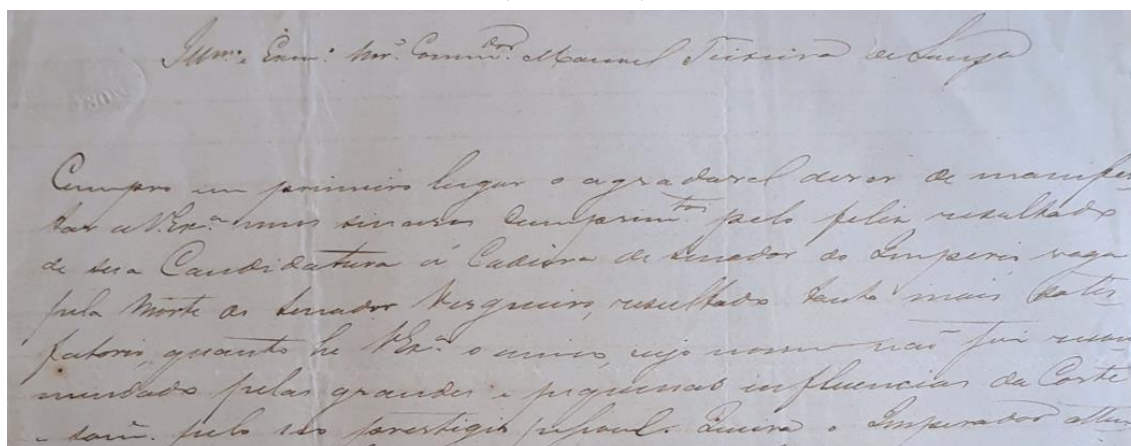 Illmo. e Exmo. Snr. Commdor. Manuel Teixeira de Souza
Cumpro em primeiro lugar o agradavel dever de manifes-
tar a V.Exa. meus sinceros cumprimtos pelo feliz resultado
de sua Candidatura á Cadeira de Senador do Imperio vaga
pela Morte do Senador Vergueiro, resultado tanto mais satis-
fatorio, quanto he V.Exa. o unico, cujo nome não foi recom-
mendado pelas grandes e pequenas influencias da Corte
e sim pelo seo prestigio pessoal. Queira o Imperador